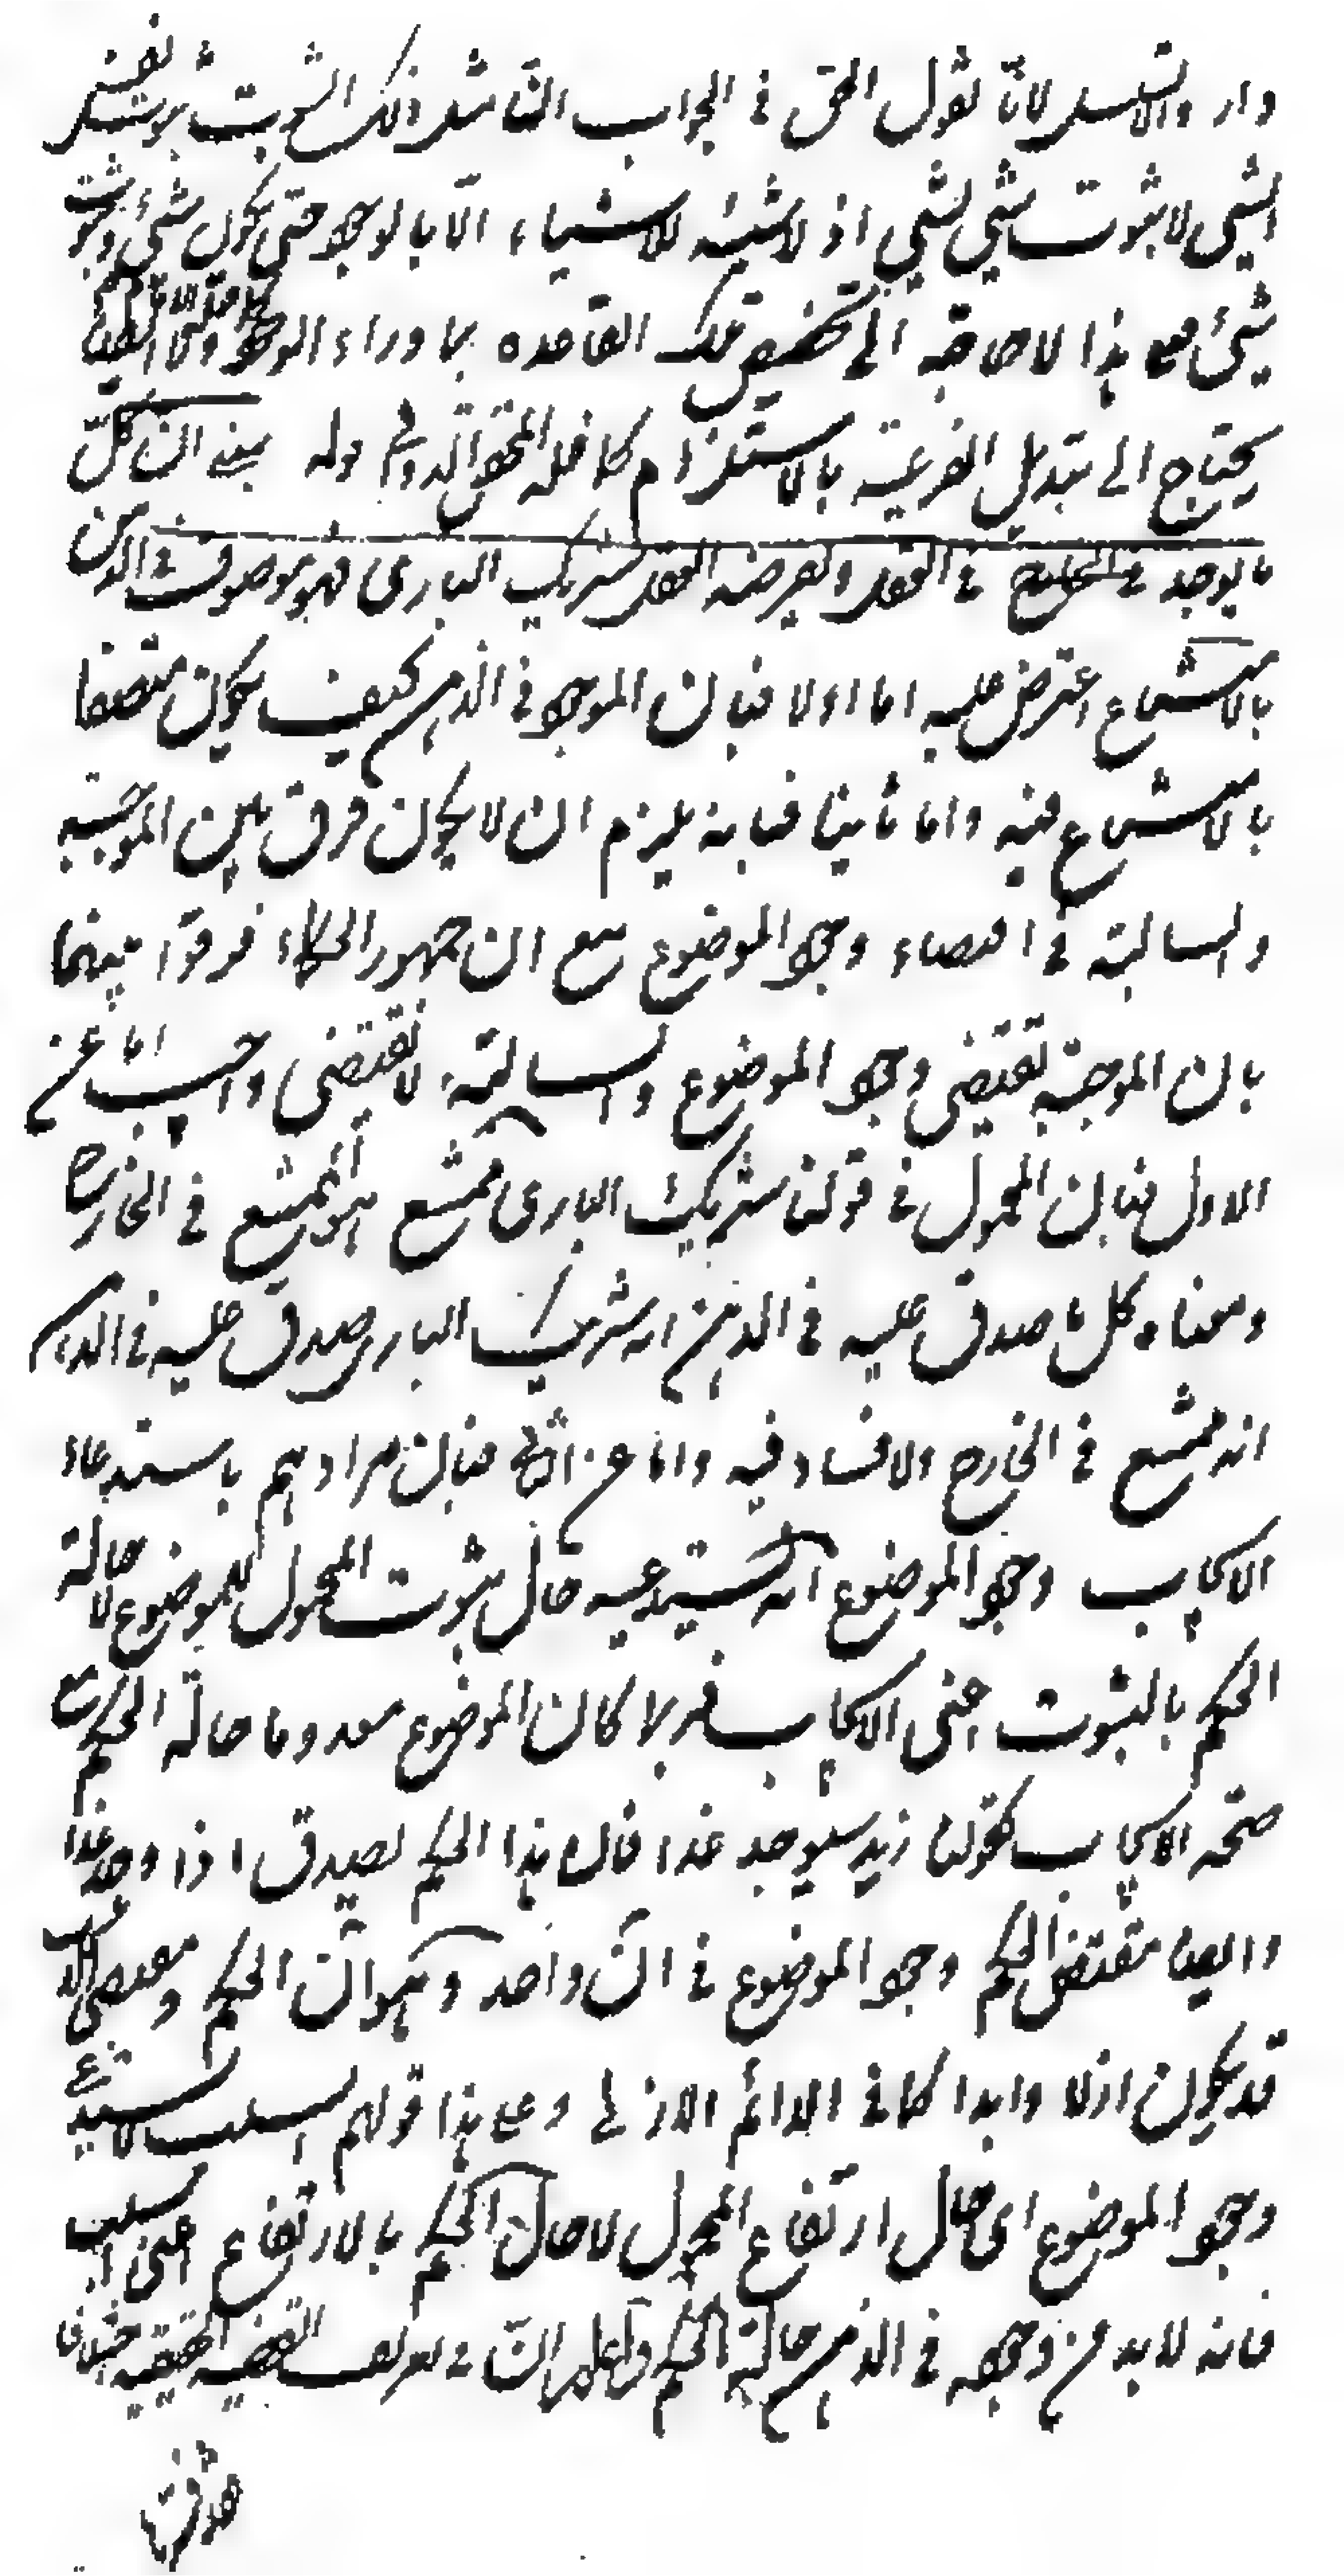 دار والتسلسل لانا نقول الحق في الجواب ان ذلك الثبوت ثبوت نفس
الشيء لا ثبوت شيء لشيء اذ لا شيئية للاشياء الا بالوجود حتى يكون شيء وثبوت
شيء فمع هذا لا حاجة الى تخصيص تلك القاعدة بما وراء الوجود
يحتاج الى تبديل الفرعية بالاستلزام كما فعله المحقق الدواني قوله يعني ان كل
ما يوجد في العقل ويفرضه العقل شريك الباري فهو موصوف في الذهن
بالامتناع اعترض عليه اما اولا فبان الموجود في الذهن كيف يكون متصفا
بالامتناع فيه واما ثانيا فبانه يلزم ان لا يكون فرق بين الموجبة
والسالبة في اقتضاء وجود الموضوع مع ان جمهور الحكماء فرقوا بينهما
بان الموجبة تقتضي وجود الموضوع والسالبة لا تقتضي واجيب اما عن
الاول فبان المحمول في قولنا شريك الباري ممتنع هو الممتنع في الخارج
ومعناه كل ما صدق عليه في الذهن انه شريك الباري صدق عليه في الذهن
انه ممتنع في الخارج ولا فساد فيه واما عن الثاني فبان مرادهم باستدعاء
الايجاب وجود الموضوع انه يستدعيه حال ثبوت المحمول للموضوع لا حالة
الحكم بالثبوت اعني الايجاب فربما كان الموضوع معدوما حالة الحكم مع
صحة الايجاب كقولنا زيد سيوجد غدا فان هذا الحكم يصدق اذا وجد غدا
وايضا مقتضى الحكم وجود الموضوع في آن واحد وهو آن الحكم ومقتضى
قد يكون ازلا وابدا كما في الدائم الازلي وعلى هذا قولهم السلب لا يستدعي
وجود الموضوع اي حال ارتفاع المحمول لا حال الحكم بالارتفاع اعني السلب
فانه لا بد من وجوده في الذهن حالة الحكم واعلم ان في تعريف القضية الحقيقية